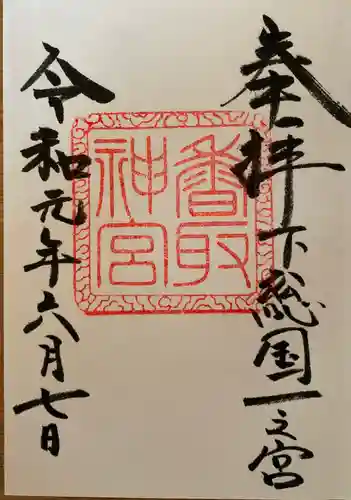 奉拝下総国一之宮
香取神宮
令和元年六月七日